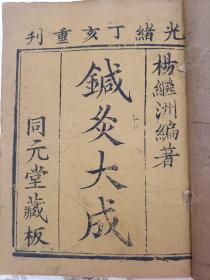 光緒丁亥重刊
楊繼洲編著
鍼灸大成
同元堂藏板